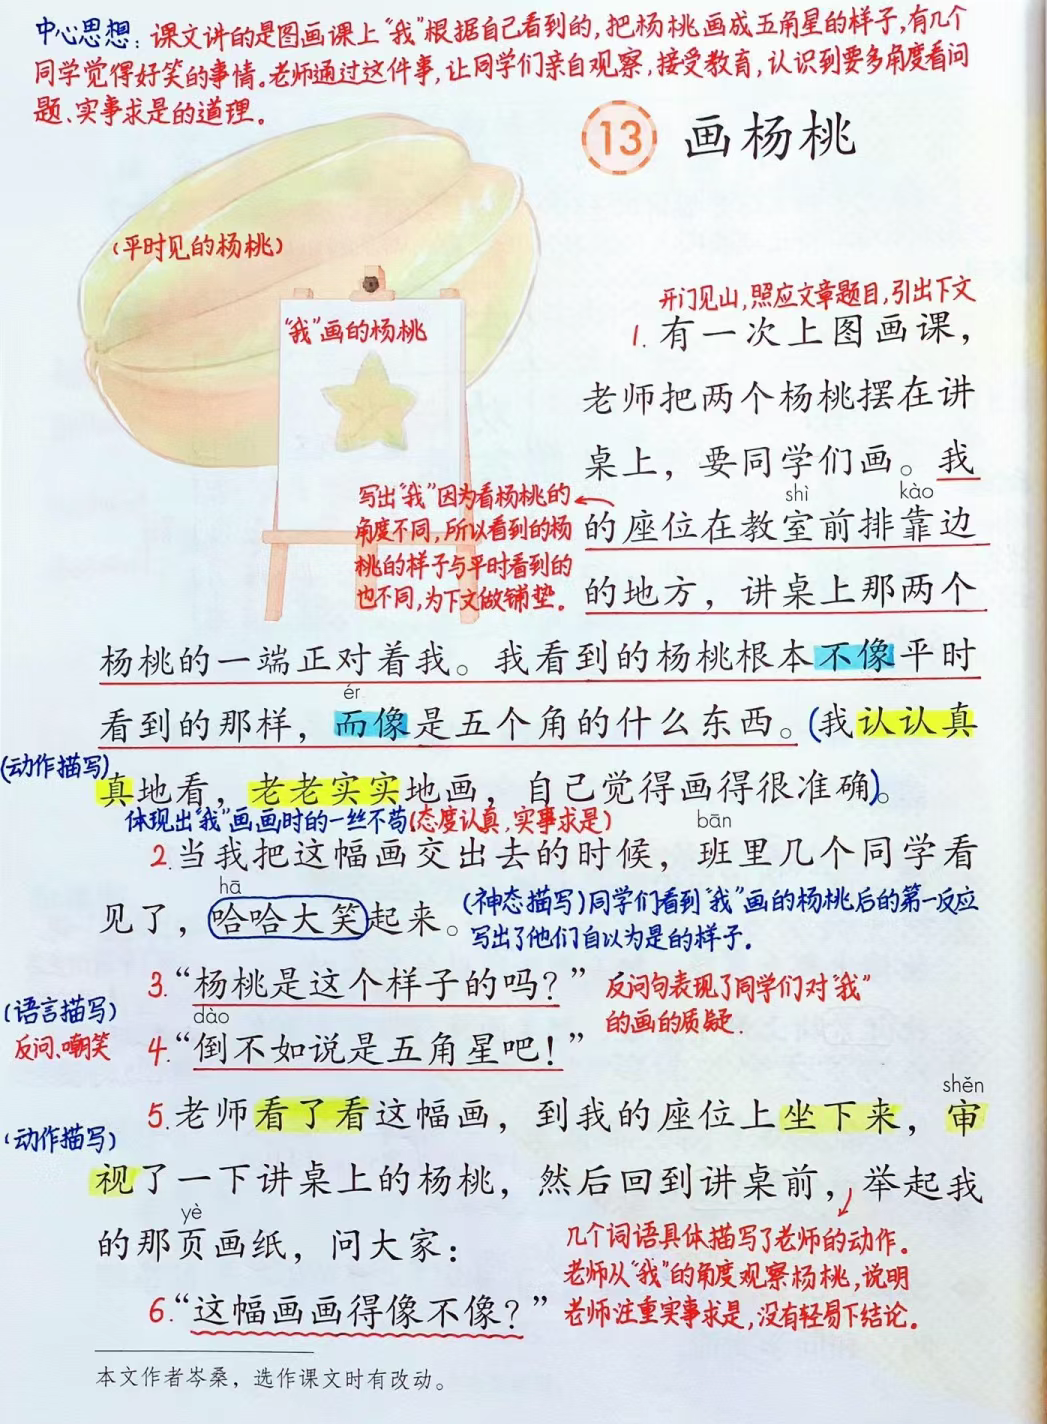 中心思想：课文讲的是图画课上“我”根据自己看到的，把杨桃画成五角星的样子，有几个
同学觉得好笑的事情。老师通过这件事，让同学们亲自观察，接受教育，认识到要多角度看问
题、实事求是的道理。
13 画杨桃
（平时见的杨桃）
“我”画的杨桃
开门见山，照应文章题目，引出下文
1. 有一次上图画课，
老师把两个杨桃摆在讲
桌上，要同学们画。我
shì kào
的座位在教室前排靠边
的地方，讲桌上那两个
写出“我”因为看杨桃的
角度不同，所以看到的杨
桃的样子与平时看到的
也不同，为下文做铺垫。
杨桃的一端正对着我。我看到的杨桃根本不像平时
ér
看到的那样，而像是五个角的什么东西。（我认认真
（动作描写）
真地看，老老实实地画，自己觉得画得很准确）。
体现出“我”画画时的一丝不苟（态度认真，实事求是）
bān
2.当我把这幅画交出去的时候，班里几个同学看
hā
见了，哈哈大笑起来。
（神态描写）同学们看到“我”画的杨桃后的第一反应
写出了他们自以为是的样子.
3.“杨桃是这个样子的吗？”
反问句表现了同学们对“我”
的画的质疑.
（语言描写）
反问、嘲笑
dào
4.“倒不如说是五角星吧！”
shěn
5.老师看了看这幅画，到我的座位上坐下来，审
（动作描写）
视了一下讲桌上的杨桃，然后回到讲桌前，举起我
yè
的那页画纸，问大家：
几个词语具体描写了老师的动作。
老师从“我”的角度观察杨桃，说明
老师注重实事求是，没有轻易下结论。
6.“这幅画画得像不像？”
本文作者岑桑，选作课文时有改动。